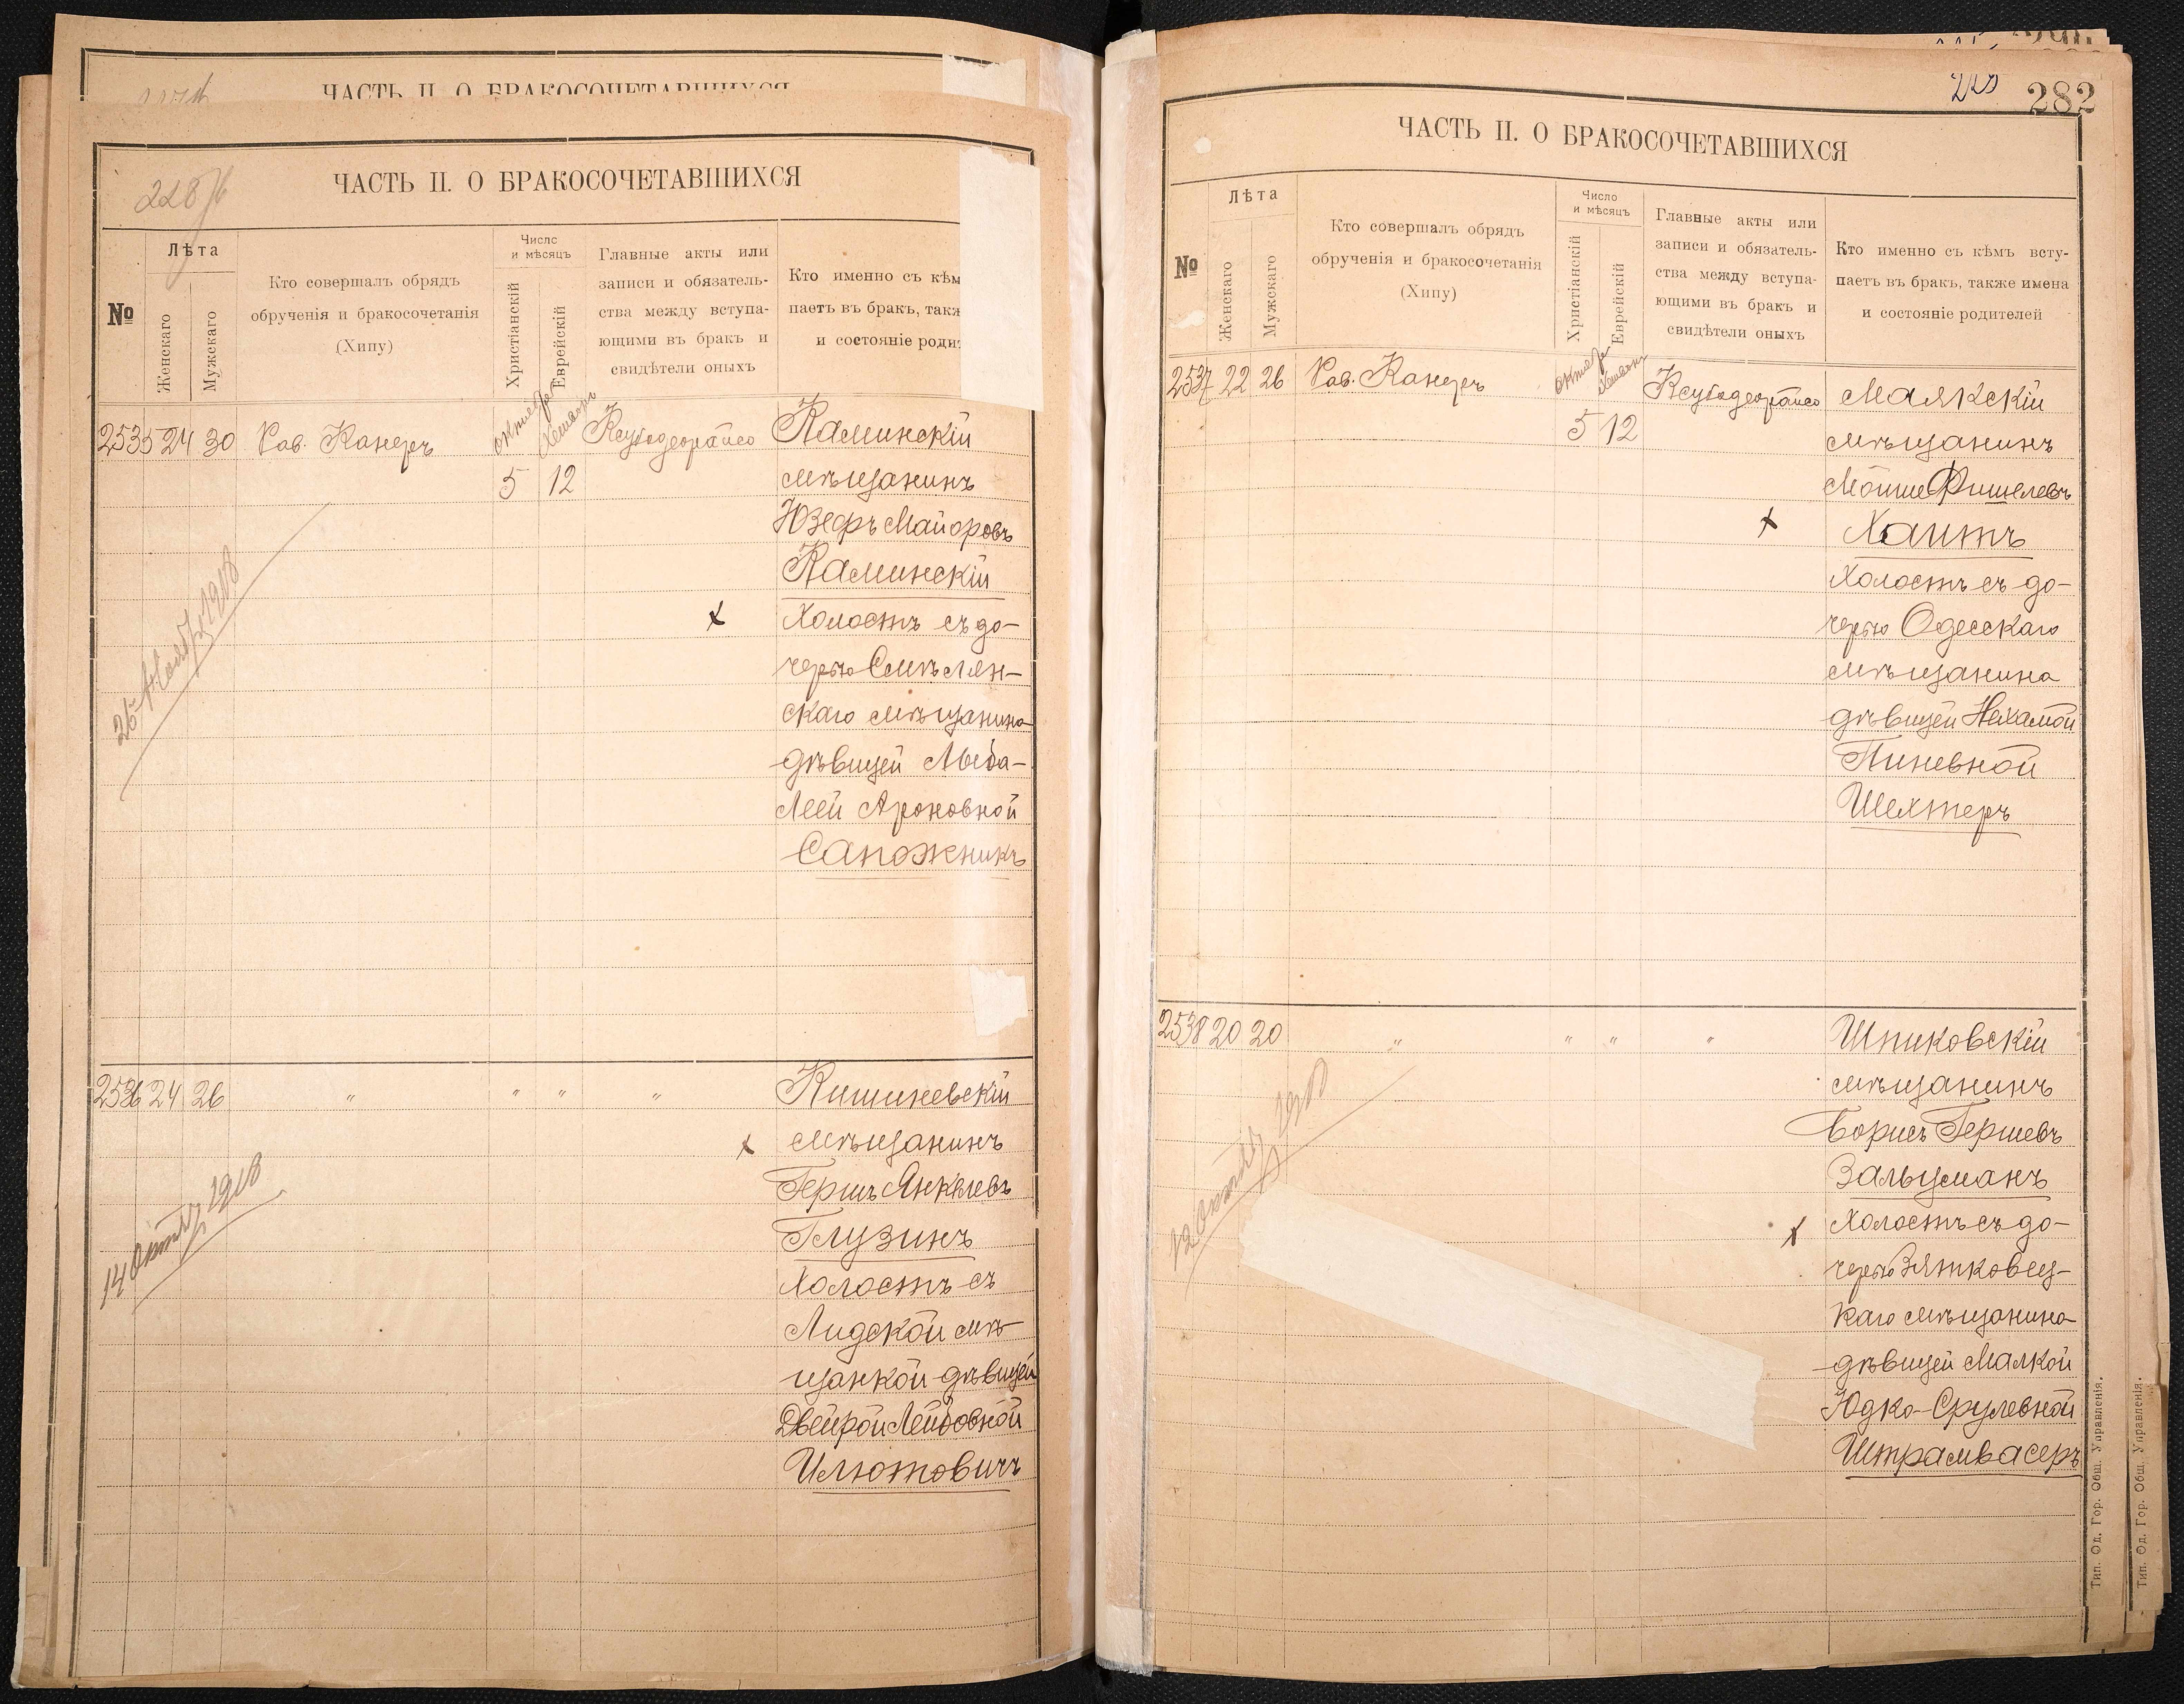 ЧАСТЬ II. О БРАКОСОЧЕТАВШИХСЯ
228
ЧАСТЬ II. О БРАКОСОЧЕТАВШИХСЯ
№
Лѣта
Женскаго
Мужскаго
Кто совершалъ обрядъ
обрученія и бракосочетанія
(Хипу)
Число
и мѣсяцъ
Христіанскій
Еврейскій
Главные акты или
записи и обязатель-
ства между вступа-
ющими въ бракъ и
свидѣтели оныхъ
Кто именно съ кѣм
паетъ въ бракъ, такж
и состояніе роди
2535 24 30 Рав. Канеръ
5 12
Каминскій
мѣщанинъ
Юзефъ Майоровъ
Каминскій
Холостъ съ до-
черью Смѣлян-
скаго мѣщанина
дѣвицей Люба-
Леей Ароновной
Сапожникъ
26 Ноябр 1918
2536 24 26 " " " "
Кишиневскій
мѣщанинъ
Гершъ Янкелевъ
Глузинъ
Холостъ съ
Лидской мѣ-
щанкой дѣвицей
Двейрой Лейбовной
Илютовичъ
14 Октяб 1918
282
ЧАСТЬ II. О БРАКОСОЧЕТАВШИХСЯ
№
Лѣта
Женскаго
Мужскаго
Кто совершалъ обрядъ
обрученія и бракосочетанія
(Хипу)
Число
и мѣсяцъ
Христіанскій
Еврейскій
Главные акты или
записи и обязатель-
ства между вступа-
ющими въ бракъ и
свидѣтели оныхъ
Кто именно съ кѣмъ всту-
паетъ въ бракъ, также имена
и состояніе родителей
2537 22 26 Рав. Канеръ
5 12
Маякскій
мѣщанинъ
Мойше Фишелевъ
Хаитъ
Холостъ съ до-
черью Одесскаго
мѣщанина
дѣвицей Нехамой
Пиневной
Шехтеръ
2538 20 20 " " " "
Шпиковскій
мѣщанинъ
Борисъ Гершевъ
Зальцманъ
Холостъ съ до-
черью Зятковец-
каго мѣщанина
дѣвицей Малкой
Юдко-Срулевной
Штрамвасеръ
12 Октяб
Тип. Од. Гор. Общ. Управленія.
Тип. Од. Гор. Общ. Управленія.